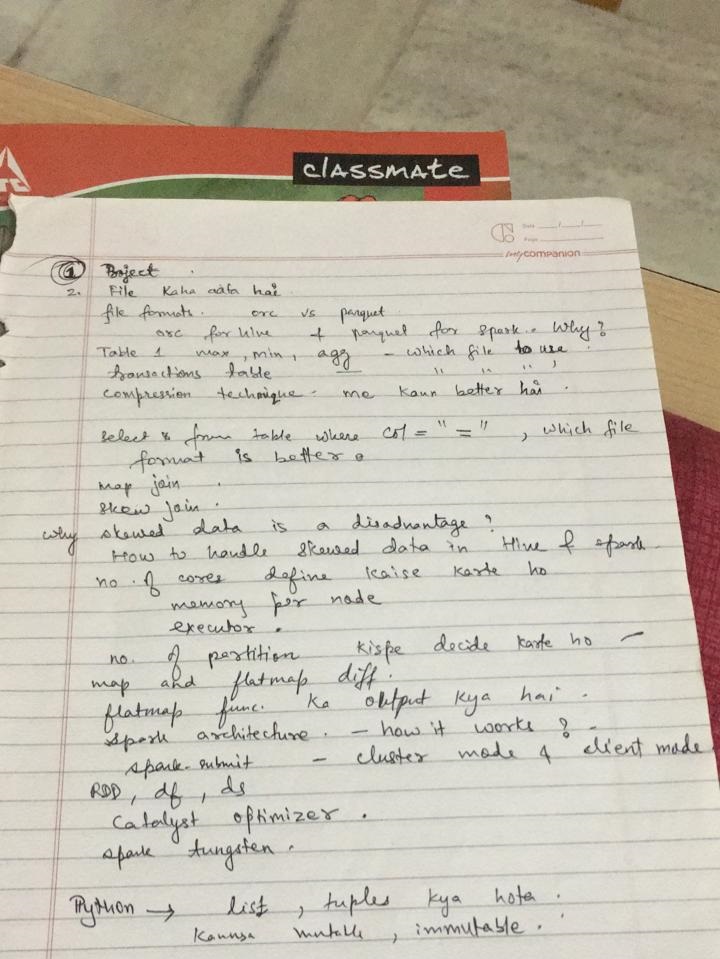 classmate
Date __/__/__
Page ______
mycompanion
1 Project .
2. File Kaha aata hai
file formats. orc vs parquet
orc for hive & parquet for spark.. Why?
Table 1 max, min, agg - which file to use .
transactions table " " " ,
compression technique - me kaun better hai .
select * from table where col = " = " , which file
format is better .
map join .
skew join .
why skewed data is a disadvantage ?
How to handle skewed data in Hive & spark.
no. of cores define kaise karte ho
memory per node
executor .
no. of partition kispe decide karte ho -
map and flatmap diff.
flatmap func. ka output kya hai .
spark architecture. - how it works ? -
spark-submit - cluster mode & client mode
RDD, df, ds
Catalyst optimizer .
spark tungsten .
Python → list , tuples kya hota .
kaunsa mutable , immutable .